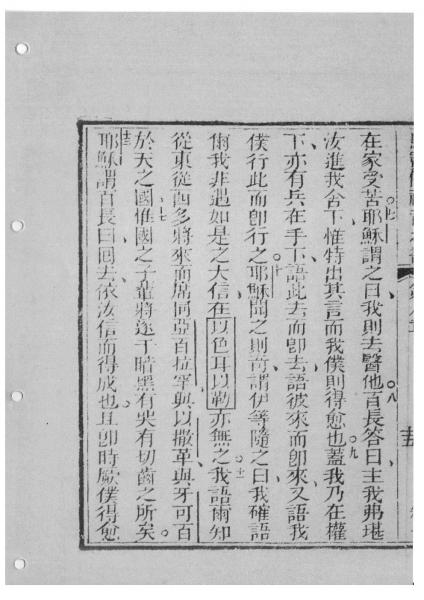 在家受苦耶穌謂之曰我則去醫他百長答曰主我弗堪
汝進我舍下惟特出其言而我僕則得愈也蓋我乃在權
下亦有兵在手下語此去而即去語彼來而即來又語我
僕行此而即行之耶穌聞之則奇謂伊等隨之曰我確語
爾我非遇如是之大信在以色耳以勒亦無之我語爾知
從東從西多將來而席同亞百拉罕與以撒革與牙可百
於天之國惟國之子輩將逐于暗黑有哭有切齒之所矣
耶穌謂百長曰回去依汝信而得成也且即時厥僕得愈